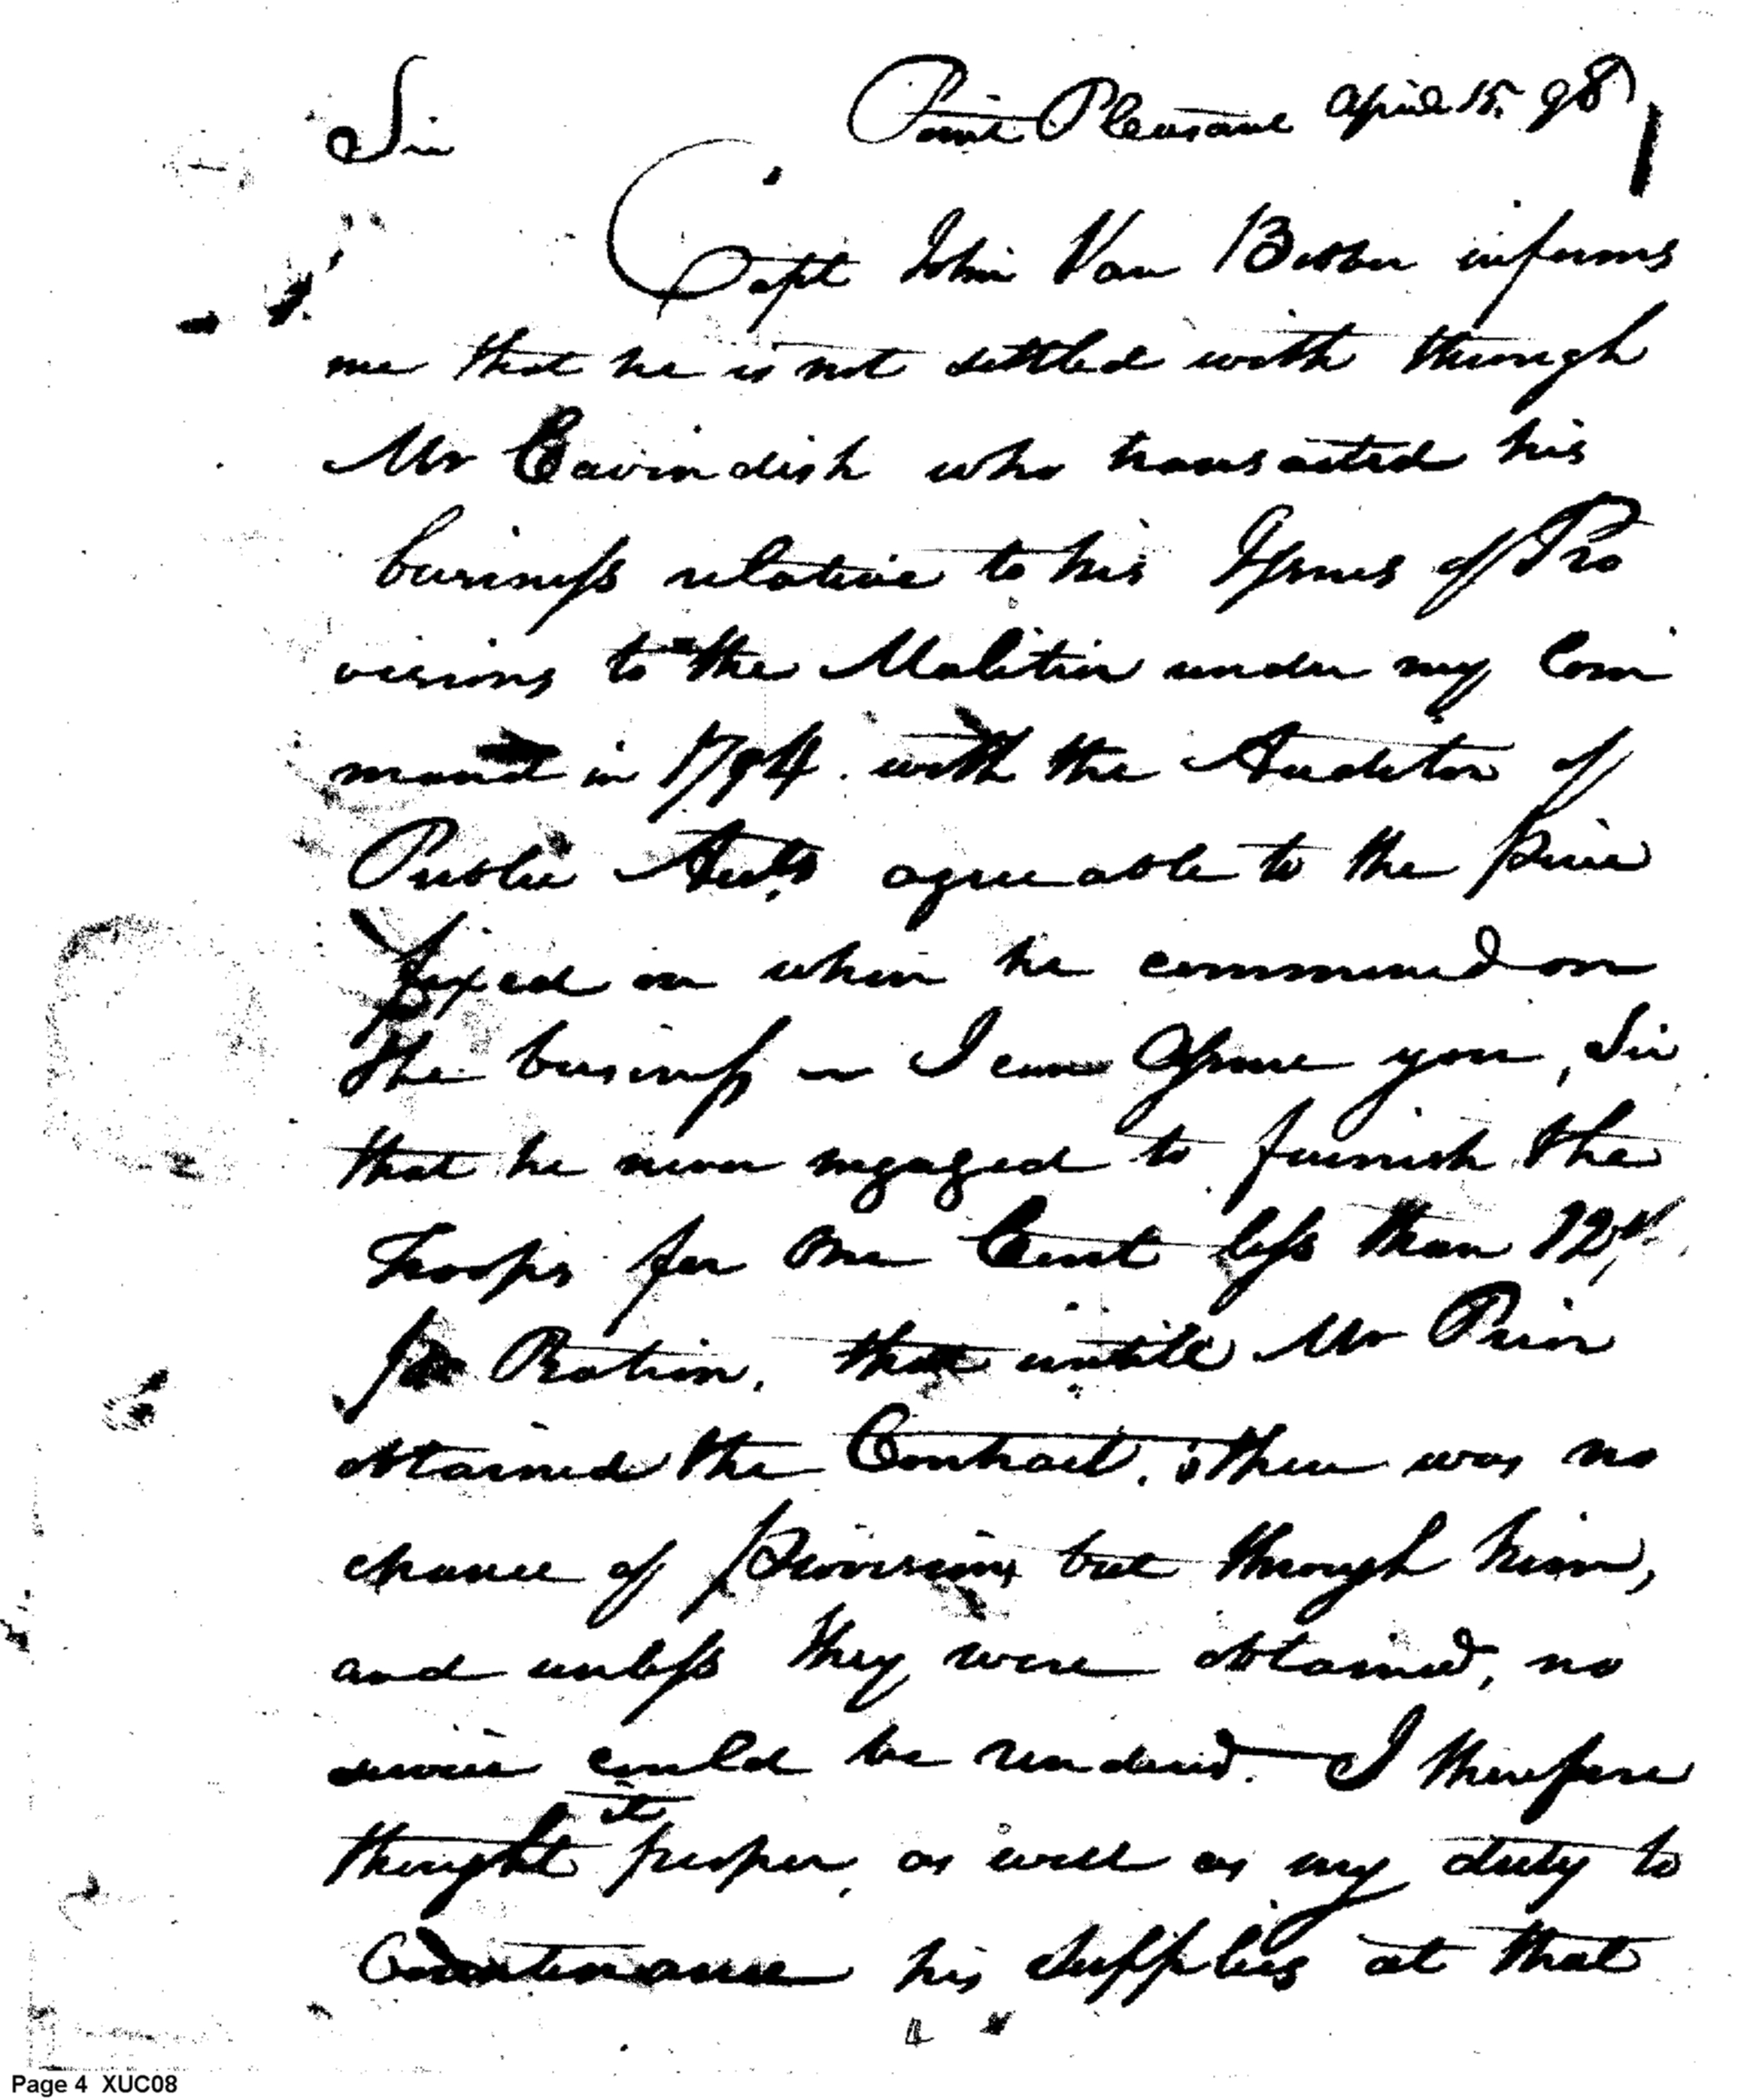 Sir Point Pleasant April 15. 98
Capt John Van Bibber informs
me that he is not settled with through
Mr Cavindish who transacted his
business relative to his Issues of Pro
visions to the Malitia under my Com
mand in 1794. with the Auditor of
Public Accts, agreeable to the price
fixed on when he commenced on
the business — I can Assure you, Sir
that he never engaged to furnish the
Troops for one Cent less than 12d.
pr Ration. that untill Mr Prior
obtained the Contract. there was no
chance of provisions but through him,
and unless they were obtained, no
service could be rendered. — I therefore
thought it proper, as well as my duty to
Countenance his Supplies at that
4
Page 4 XUC08